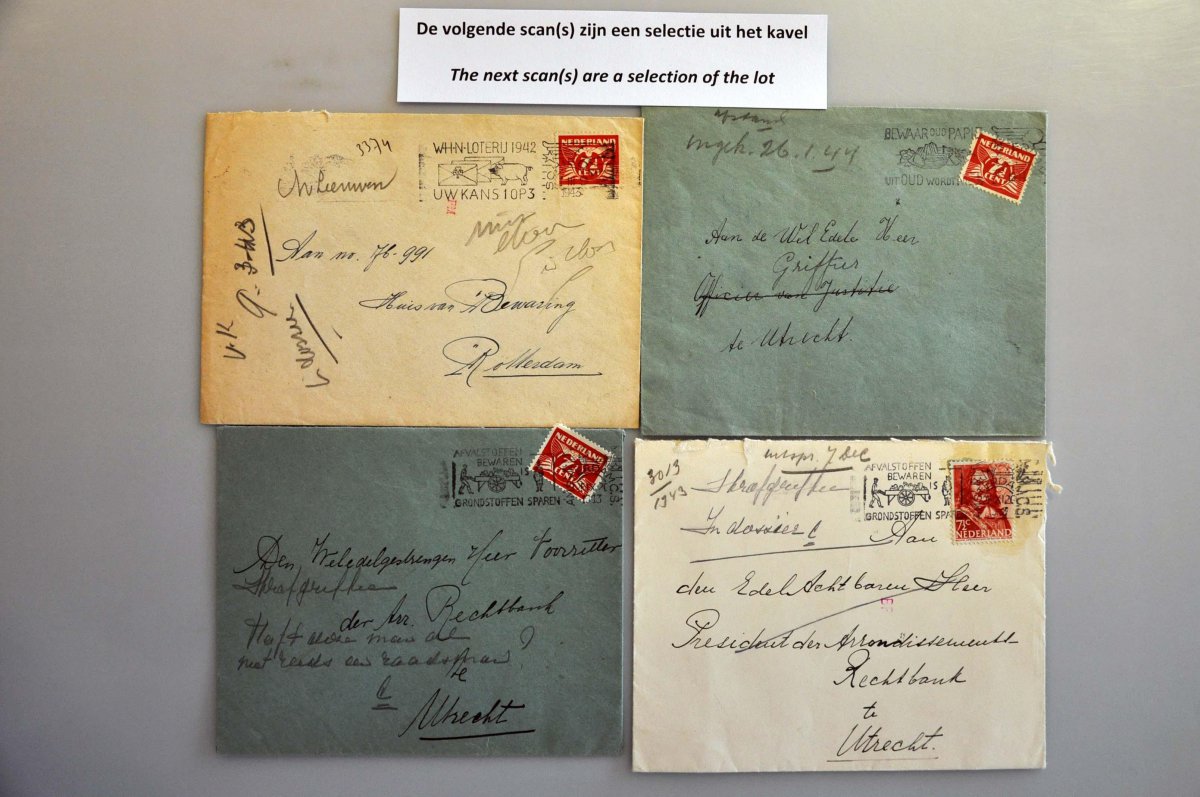 De volgende scan(s) zijn een selectie uit het kavel
The next scan(s) are a selection of the lot
3374
WHN-LOTERIJ 1942
UW KANS 1 OP 3
NEDERLAND
7½
CENT
1943
Aan no. 76-991
Huis van Bewaring
Rotterdam
V.K
Ingk. 26.1.44
BEWAAR OUD PAPIER
UIT OUD WORDT
NEDERLAND
7½
CENT
Aan de Wel Edele Heer
Griffier
Officier van Justitie
te Utrecht.
AFVALSTOFFEN
BEWAREN
IS
GRONDSTOFFEN SPAREN
NEDERLAND
7½
Den Weledelgestrengen Heer Voorzitter
Strafgriffie
der Arr. Rechtbank
Heeft deze man al
niet reeds een raadsman?
te
Utrecht
3013
1943
7 Dec
Strafgriffie
In dossier
AFVALSTOFFEN
BEWAREN
IS
GRONDSTOFFEN SPA
7½c
NEDERLAND
Aan
den EdelAchtbaren Heer
President der Arrondissements-
Rechtbank
te
Utrecht.